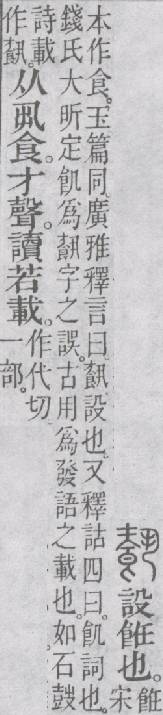 𩛥設飪也。飪
宋
本作食。玉篇同。廣雅釋言曰。𩛥設也。又釋詁四曰。飢詞也。
錢氏大昕定飢爲𩛥字之誤。古用爲發語之載也。如石鼓
詩載
作𩛥。
从丮食。才聲。讀若載。
作代切
一部。